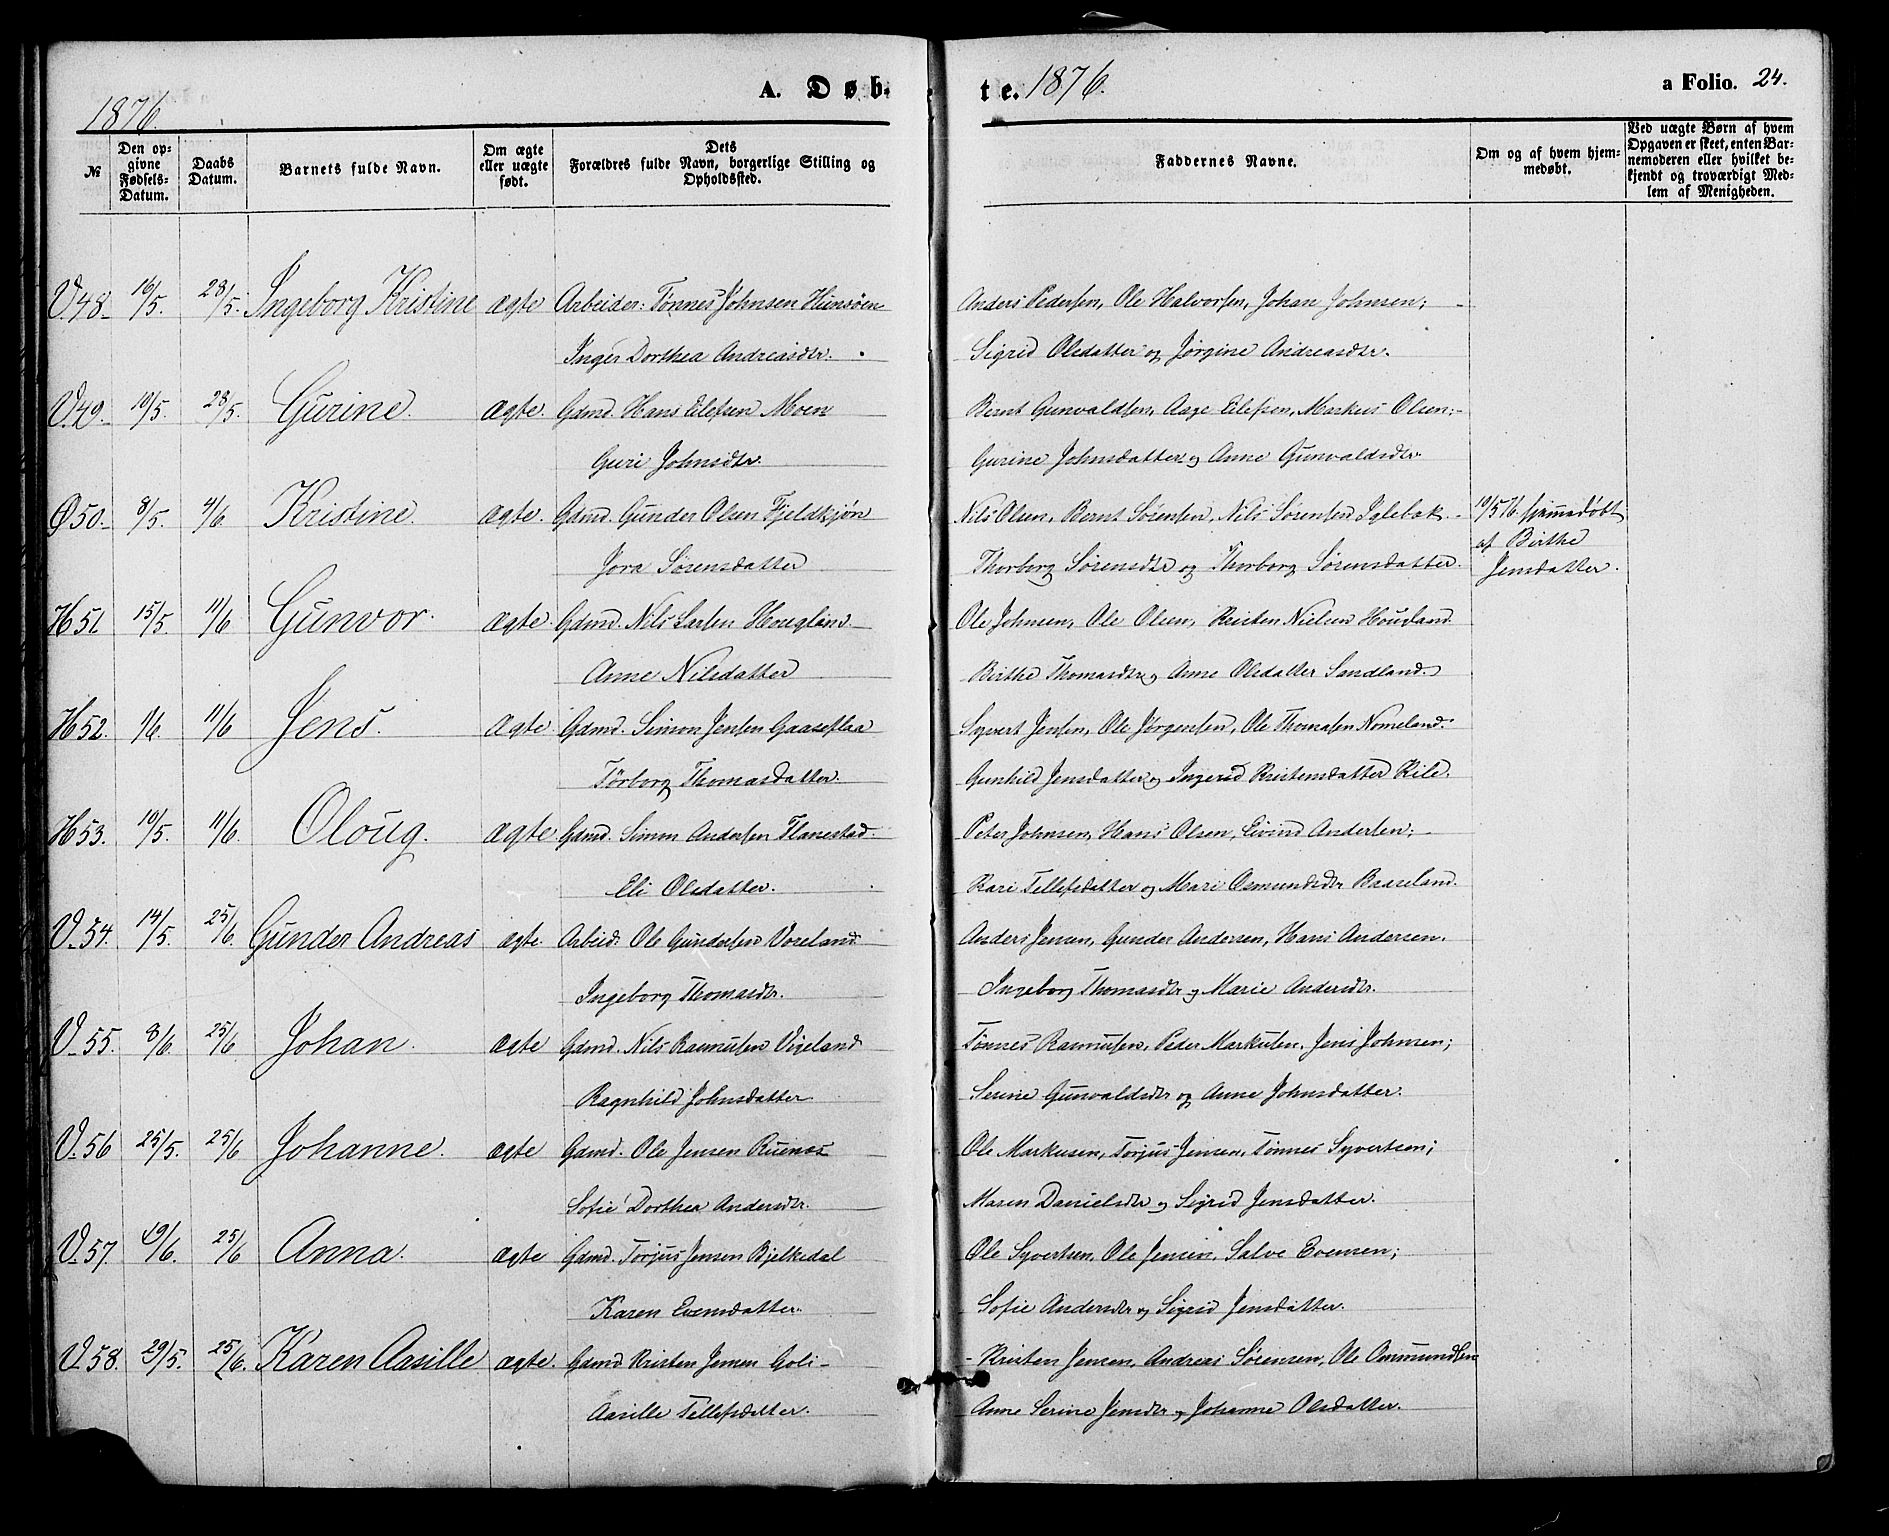 1876.
A. Døb-
te. 1876.
a Folio. 24.
№
Den opgivne Fødsels-Datum.
Daabs Datum.
Barnets fulde Navn.
Om ægte eller uægte født.
Dets Forældres fulde Navn, borgerlige Stilling og Opholdssted.
Faddernes Navne.
Om og af hvem hjemmedøbt.
Ved uægte Børn af hvem Opgaven er skeet, enten Barnemoderen eller hvilket bekjendt og troværdigt Medlem af Menigheden.
V.48. 16/5. 28/5. Ingeborg Kristine ægte Arbeider: Tønnes Johnsen Hunsøen Anders Pedersen, Ole Halvorsen, Johan Johnsen;
Inger Dorthea Andreasdtr. Sigrid Olsdatter og Jørgine Andreasdtr.
V.49. 19/5. 28/5. Gurine. ægte. Gdmd. Hans Eilefsen Moen Bernt Gunvaldsen, Aage Eilefsen, Markus Olsen;
Guri Johnsdtr. Gurine Johnsdatter og Anne Gunvaldsdtr.
Ø50. 8/5. 4/6. Kristine. ægte. Gdmd. Gunder Olsen Fjeldkjøn Nils Olsen, Bernt Sørensen, Nils Sørensen Iglebæk. 19/5 76 hjemmedøbt
Jora Sørensdatter Thorborg Sørensdtr og Thorborg Sørensdatter. af Birthe Jensdatter.
H51. 15/5. 11/6 Gunvor. ægte. Gdmd. Nils Larsen Hougland. Ole Johnsen, Ole Olsen, Kristen Nielsen Hougland
Anne Nilsdatter Birthe Thomasdtr og Anne Olsdatter Sandland.
H52. 1/6. 11/6 Jens. ægte Gdmd. Simon Jensen Gaaseflaa Syvert Jensen, Ole Jørgensen, Ole Thomasen Nomeland.
Tørborg Thomasdatter. Gunhild Jensdatter og Ingerid Kristensdatter Kile.
H53. 10/5. 11/6. Oloug. ægte Gdmd. Simon Andersen Flanestad. Peter Johnsen, Hans Olsen, Eivind Andersen;
Eli Olsdatter. Kari Tellefsdatter og Mari Osmundsdtr Baaseland.
V.54. 14/5. 25/6. Gunder Andreas ægte Arbeid. Ole Gundersen Voreland Anders Jensen, Gunder Andersen, Hans Andersen.
Ingeborg Thomasdtr. Ingeborg Thomasdtr og Marie Andersdtr.
V.55. 8/6. 25/6 Johan. ægte Gdmd. Nils Rasmusen Vigeland Tønnes Rasmusen, Peder Markusen, Jens Johnsen;
Ragnhild Johnsdatter Serine Gunvaldsdtr og Anne Johnsdatter.
V.56 25/5. 25/6 Johanne. ægte Gdmd. Ole Jensen Ruenes Ole Markusen, Torjus Jensen, Tønnes Syvertsen;
Sofie Dorthea Andersdtr. Maren Danielsdtr og Sigrid Jensdatter.
V.57. 19/6. 25/6 Anna. ægte Gdmd. Torjus Jensen Bjelkedal Ole Syvertsen, Ole Jensen, Salve Evensen;
Karen Evensdatter. Sofie Andersdtr og Sigrid Jensdatter.
V.58. 29/5. 25/6. Karen Aasille ægte. Gdmd Kristen Jensen Goli- Kristen Jensen, Andreas Sørensen, Ole Ommundsen
Aasille Tellefsdatter. Anne Serine Jensdtr og Johanne Olsdatter.